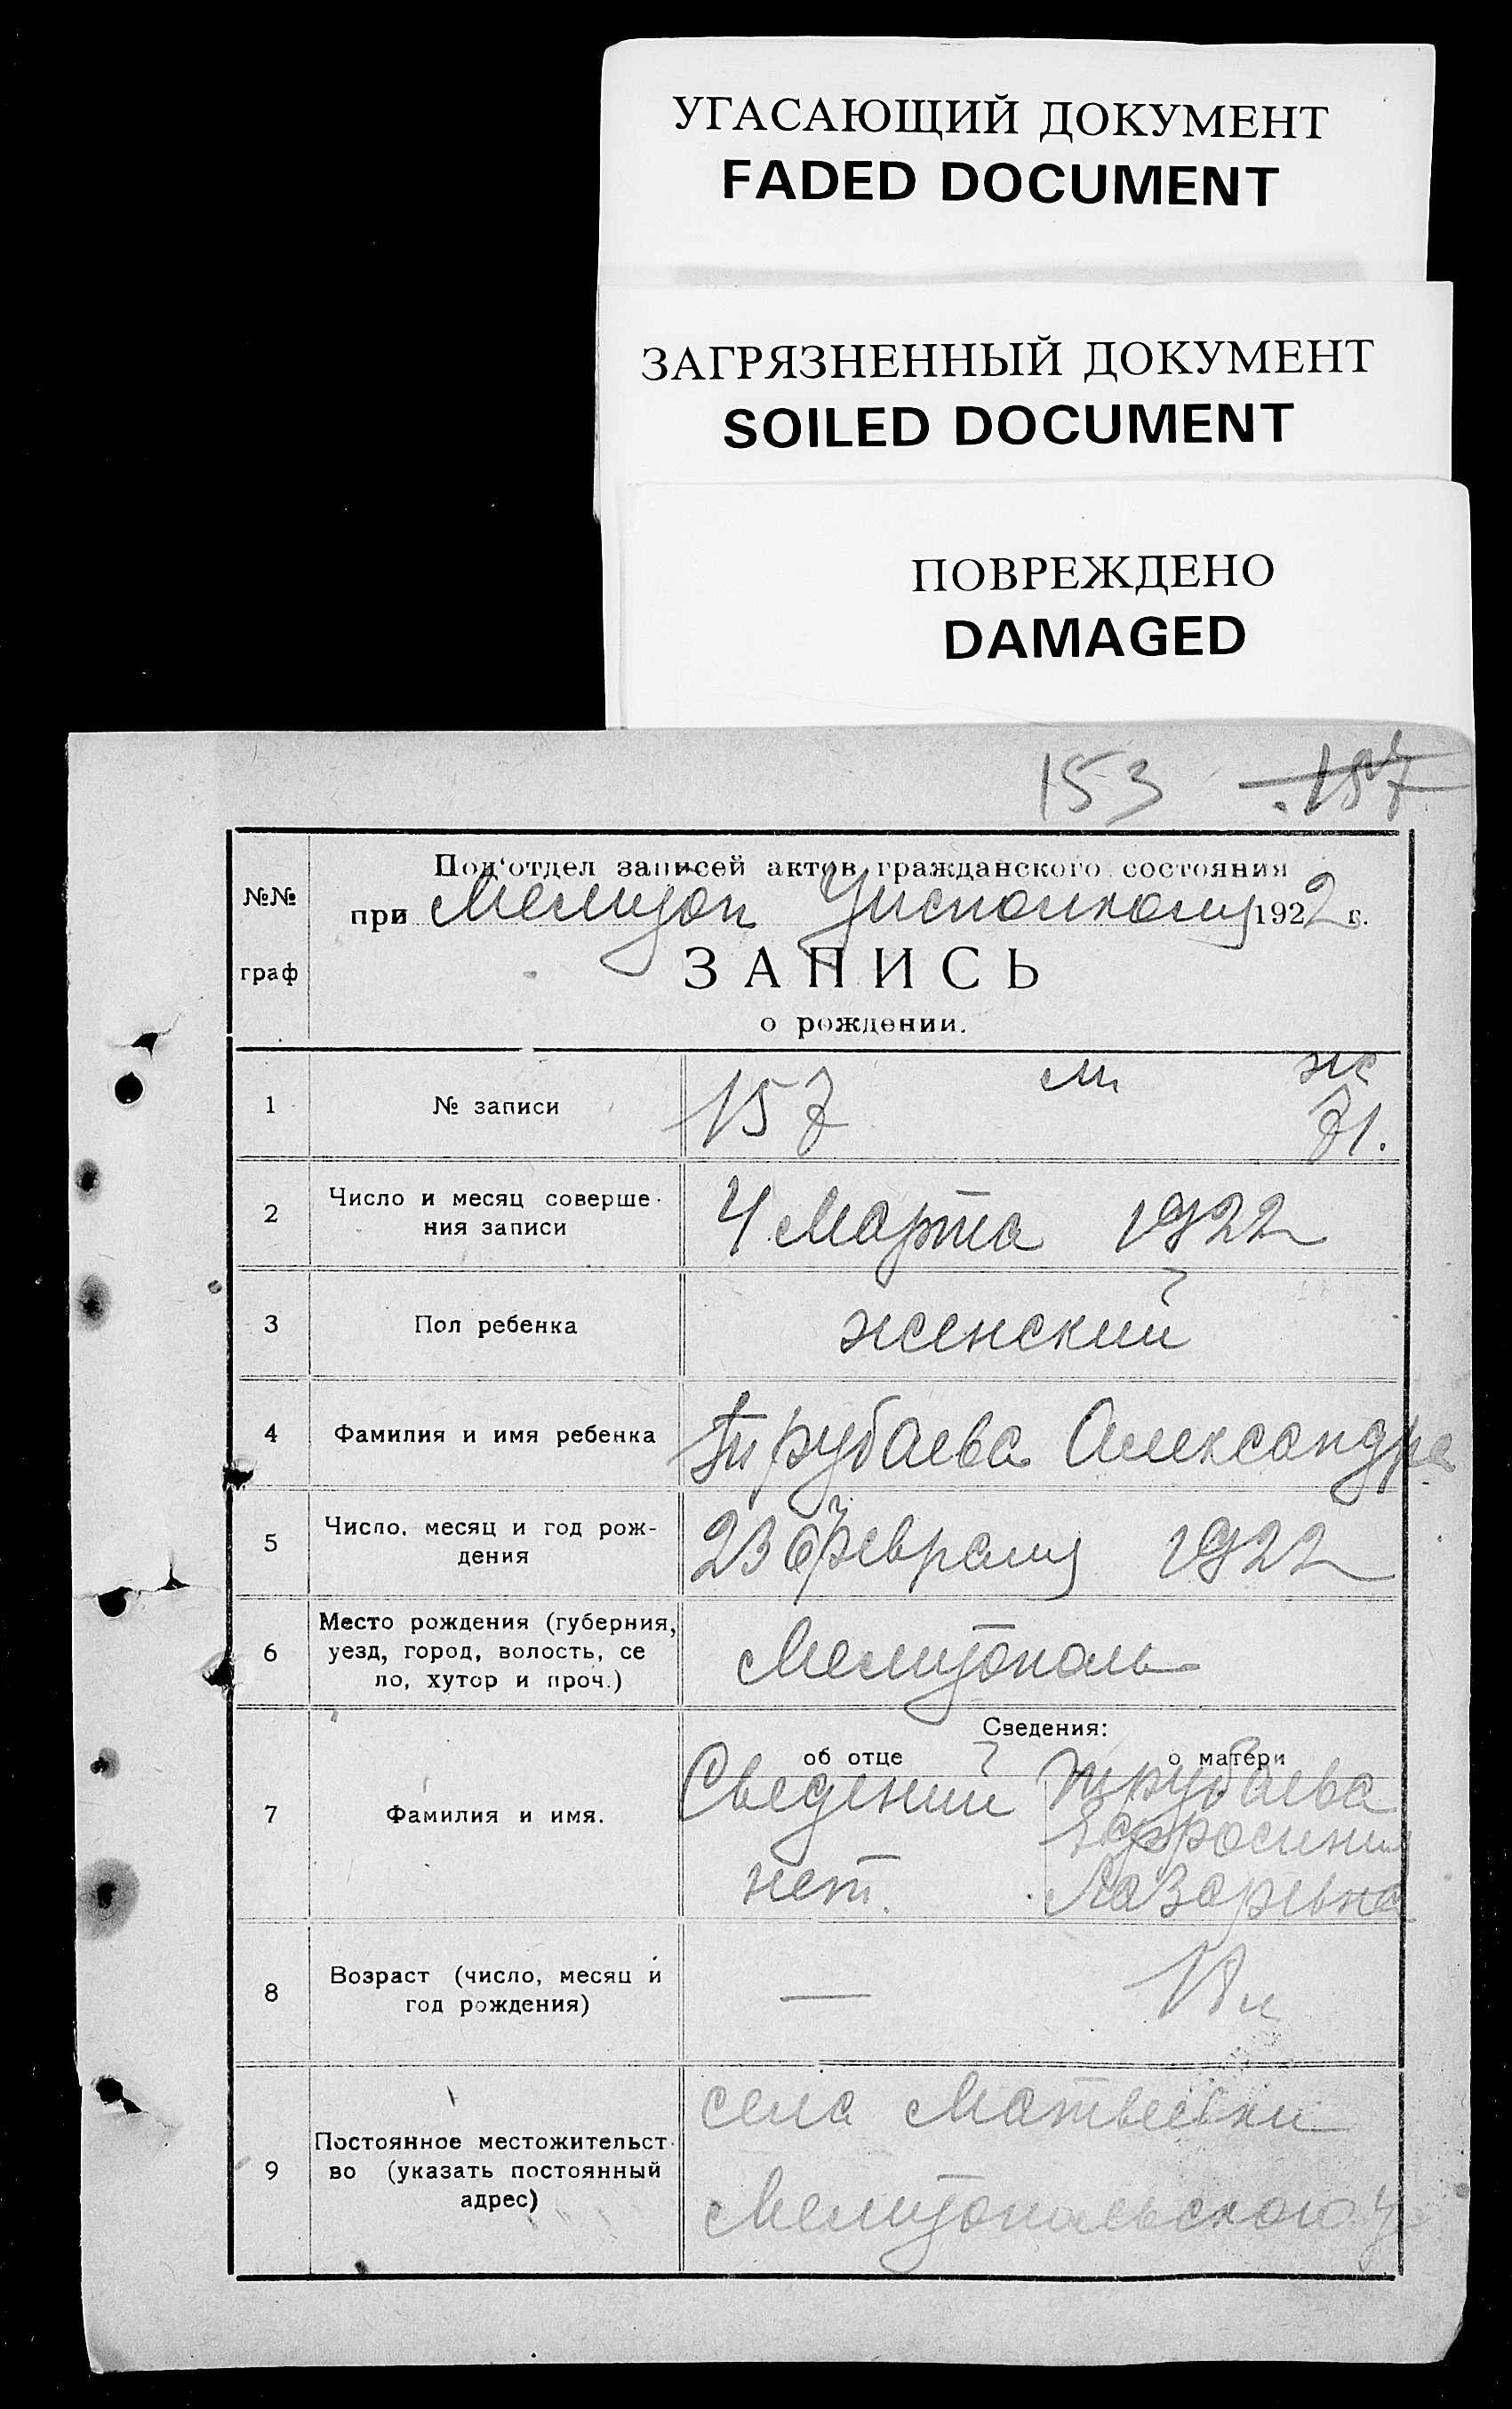 УГАСАЮЩИЙ ДОКУМЕНТ
FADED DOCUMENT
ЗАГРЯЗНЕННЫЙ ДОКУМЕНТ
SOILED DOCUMENT
ПОВРЕЖДЕНО
DAMAGED
153 157
№№
граф
Под'отдел записей актов гражданского состояния
при Мелитоп Уисполкому 1922 г.
ЗАПИСЬ
о рождении.
1 № записи 157 м ж
71.
2 Число и месяц соверше-
ния записи 4 Марта 1922
3 Пол ребенка женский
4 Фамилия и имя ребенка Трубаева Александра
5 Число, месяц и год рож-
дения 23 февраля 1922
6 Место рождения (губерния,
уезд, город, волость, се
ло, хутор и проч.) Мелитополь
Сведения:
об отце о матери
7 Фамилия и имя. Сведений нет. Трубаева
Ефросиния
Лазаревна
8 Возраст (число, месяц и
год рождения) — 18 л
9 Постоянное местожительст-
во (указать постоянный
адрес) села Матвеевки
Мелитопольского у